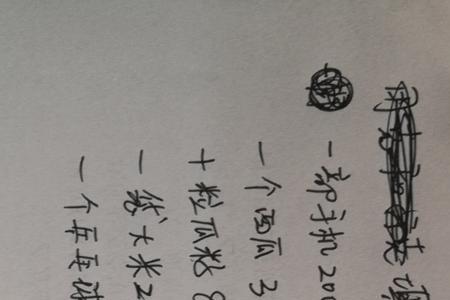 一部手机 200
一个西瓜 3
十粒瓜籽 8
一袋大米 2
一个乒乓球